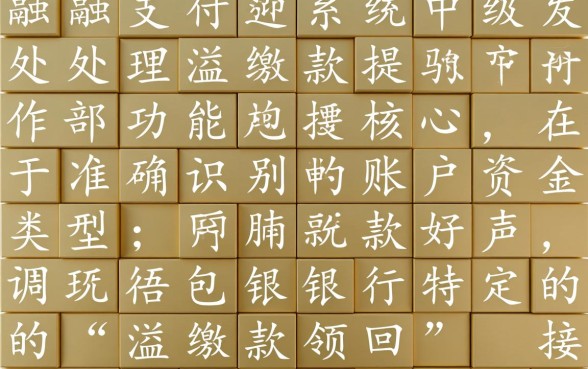 融融支付迎系统中级发
处处理溢缴款提
作部功能 核心，在
于准确识别 账户资金
类型； 款好声，
调 包银银行特定的
的“溢缴款领回” 接